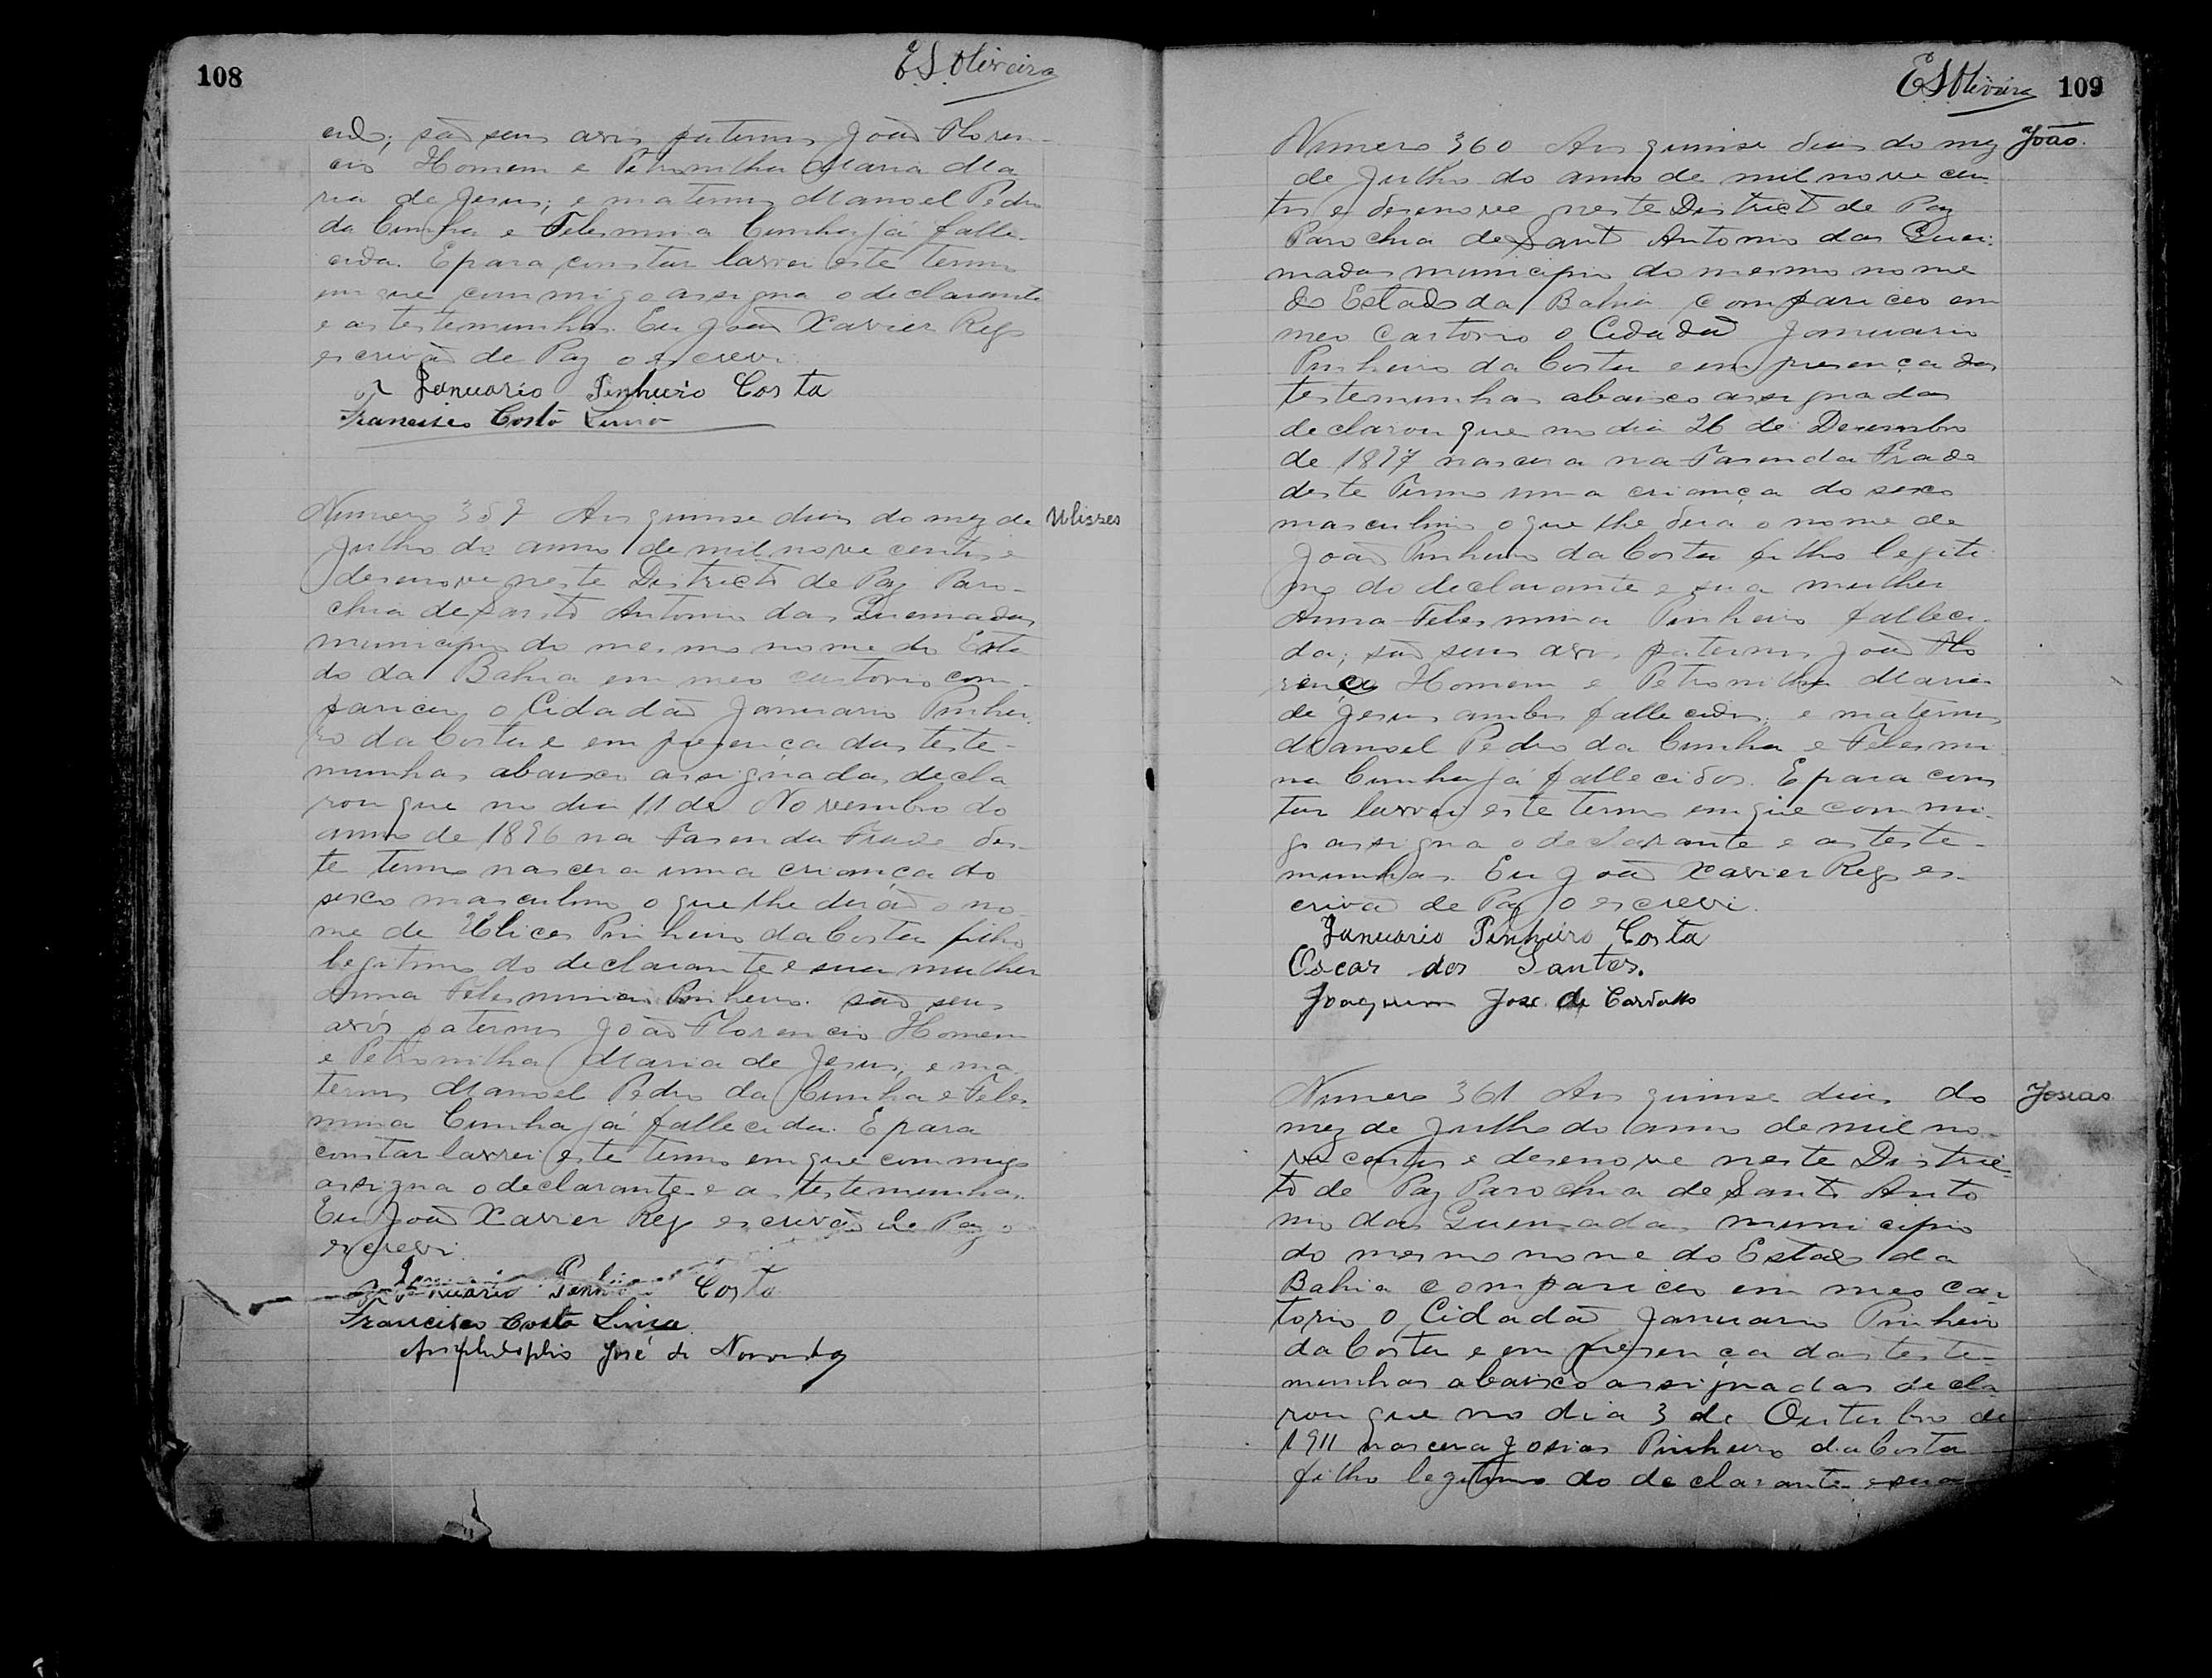 108
E S Oliveira
cido; são seus avós paternos João Floren-
cio Homem e Petronilha Maria Ma
ria de Jesus; e maternos Manoel Pedro
da Cunha e Felesmina Cunha já falle-
cida. E para constar lavrei este termo
em que commigo assigna o declarante
e as testemunhas. Eu João Xavier Rego
escrivão de Paz o escrevi.
Januario Pinheiro Costa
Francisco Costa Lima
Ulisses
Numero 359 Aos quinse dias do mez de
Julho do anno de mil nove centos e
desenove neste Districto de Paz Paro-
chia de Santo Antonio das Queimadas
municipio do mesmo nome do Esta
do da Bahia em meo cartorio com-
pariceu o Cidadão Januario Pinhei-
ro da Costa e em presença das teste-
munhas abaixo assignadas decla
rou que no dia 11 de Novembro do
anno de 1896 na Fasenda Frade des-
te termo nascera uma criança do
sexo masculino o que lhe derão o no-
me de Ulices Pinheiro da Costa filho
legitimo do declarante e sua mulher
Anna Felesmina Pinheiro. são seus
avós paternos João Florencio Homem
e Petronilha Maria de Jesus, e ma
ternos Manoel Pedro da Cunha e Feles-
mina Cunha já fallecida. E para
constar lavrei este termo em que commigo
assigna o declarante e as testemunhas.
Eu João Xavier Rego escrivão de Paz o
escrevi.
Januario Pinheiro Costa
Francisco Costa Lima
Amphilophio José de Noronha
E S Oliveira 109
João
Numero 360 Aos quinse dias do mez
de Julho do anno de mil nove cen-
tos e desenove neste Districto de Paz
Parochia de Santo Antonio das Quei-
madas municipio do mesmo nome
do Estado da Bahia compariceo em
meo cartorio o Cidadão Januario
Pinheiro da Costa e em presença das
testemunhas abaixo assignadas
declarou que no dia 26 de Desembro
de 1897 nascera na Fasenda Frade
deste Termo uma criança do sexo
masculino o que lhe dera o nome de
João Pinheiro da Costa filho legiti
mo do declarante e sua mulher
Anna Felesmina Pinheiro falleci-
da; são seus avós paternos João Flo
rencio Homem e Petronilha Maria
de Jesus ambos fallecidos; e maternos
Manoel Pedro da Cunha e Felesmi
na Cunha já fallecidos. E para cons
tar lavrei este termo em que commi-
go assigna o declarante e as teste-
munhas. Eu João Xavier Rego es-
crivão de Paz o escrevi.
Januario Pinheiro Costa
Oscar dos Santos.
Joaquim Jose de Carvalho
Josias
Numero 361 Aos quinse dias do
mez de Julho do anno de mil no-
ve centos e desenove neste Distric-
to de Paz Parochia de Santo Anto
nio das Queimadas municipio
do mesmo nome do Estado da
Bahia compariceo em meo car
torio o Cidadão Januario Pinheiro
da Costa e em presença das teste-
munhas abaixo assignadas decla
rou que no dia 3 de Outubro de
1911 nascera Josias Pinheiro da Costa
filho legitimo do declarante e sua